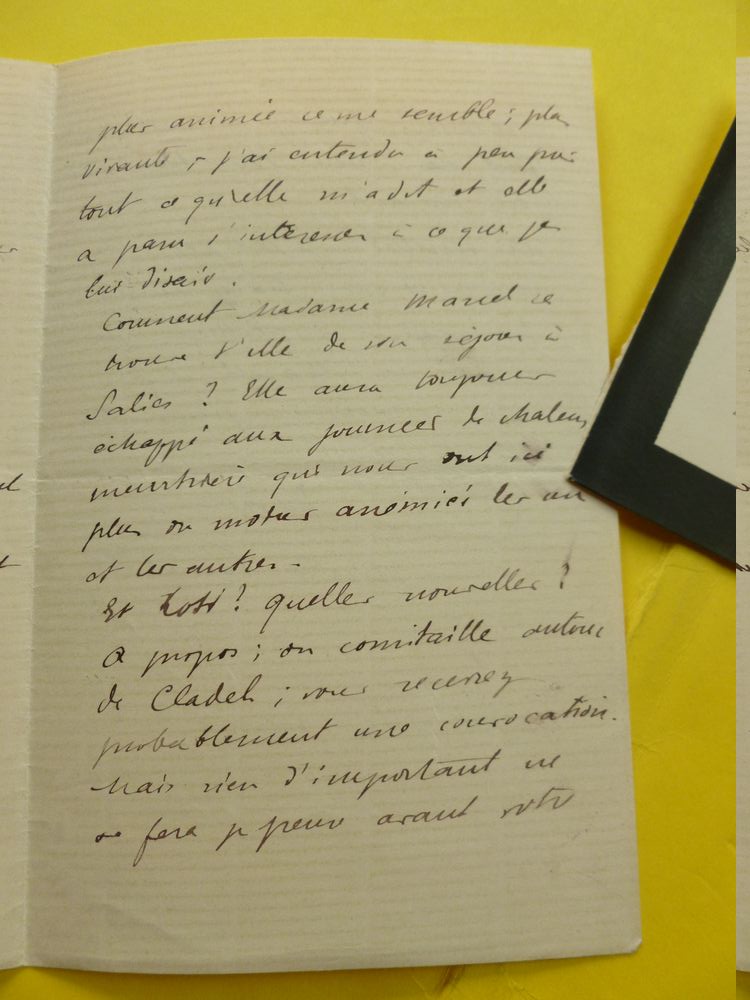 plus animée ce me semble ; plus
vivante ; j'ai entendu à peu près
tout ce qu'elle m'a dit et elle
a paru s'intéresser à ce que je
lui disais.
Comment Madame Marcel se
trouve t'elle de son séjour à
Salies ? Elle aura toujours
échappé aux journées de chaleur
meurtrière qui nous ont ici
plus ou moins anémiés les uns
et les autres.
Et Loti ? quelles nouvelles ?
A propos ; on comitaille autour
de Cladel ; vous recevrez
probablement une convocation.
Mais rien d'important ne
se fera je pense avant votre